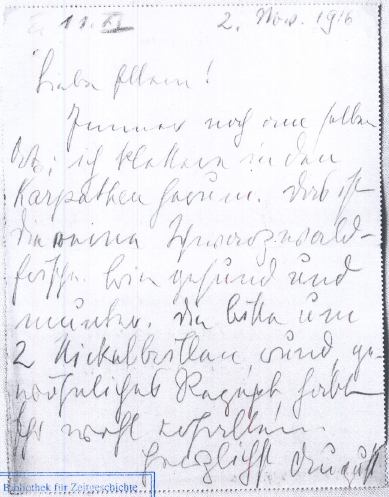 11. XI
2. Nov. 1916
Liebe Eltern!
Immer noch am selben
Ort; ich klettere in den
Karpathen herum. Dort ist
die reine Schwarzwald-
frische. Bin gesund und
munter. Ich bitte um
2 Nickelbrillen, rund, ge-
wöhnliches Rezept, habt
Ihr wohl erhalten.
Herzlichst August
Bibliothek für Zeitgeschichte